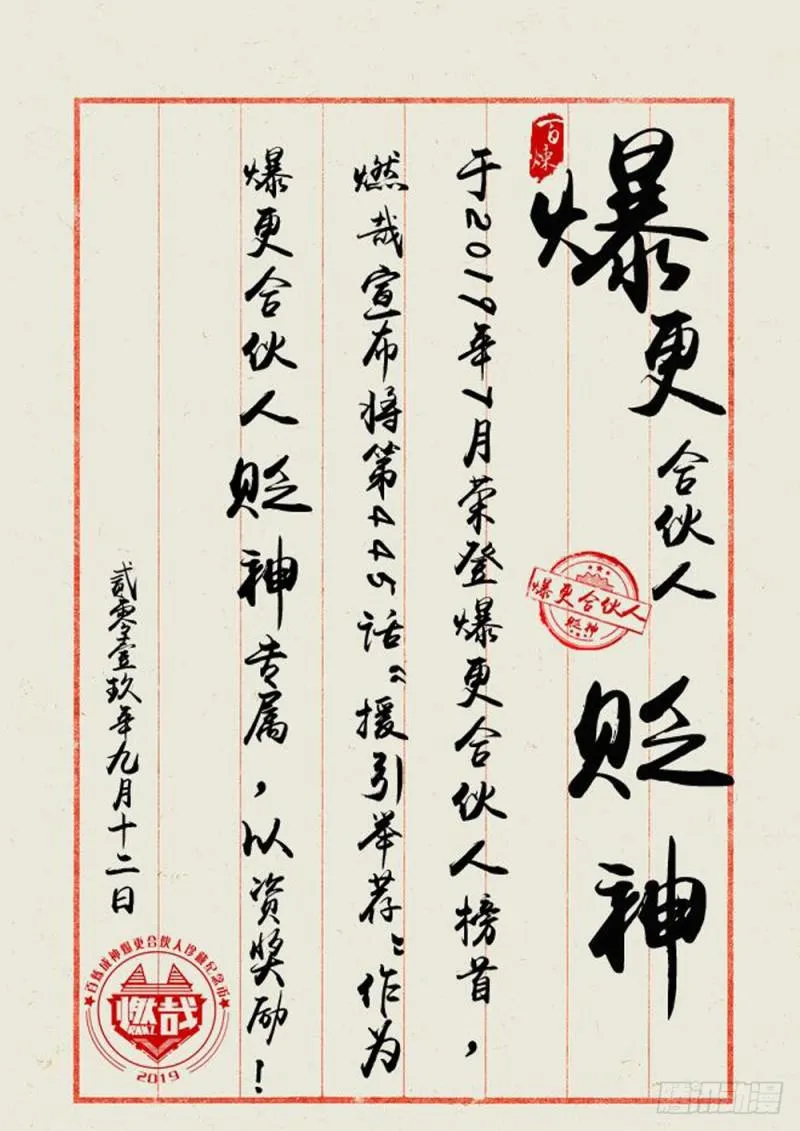 爆更合伙人 贬神
于2019年7月荣登爆更合伙人榜首，
燃哉宣布将第445话“援引举荐”作为
爆更合伙人贬神专属，以资奖励！
贰零壹玖年九月十二日
百炼
爆更合伙人
贬神
百炼成神爆更合伙人珍藏纪念币
燃哉
RANZ
2019
腾讯动漫